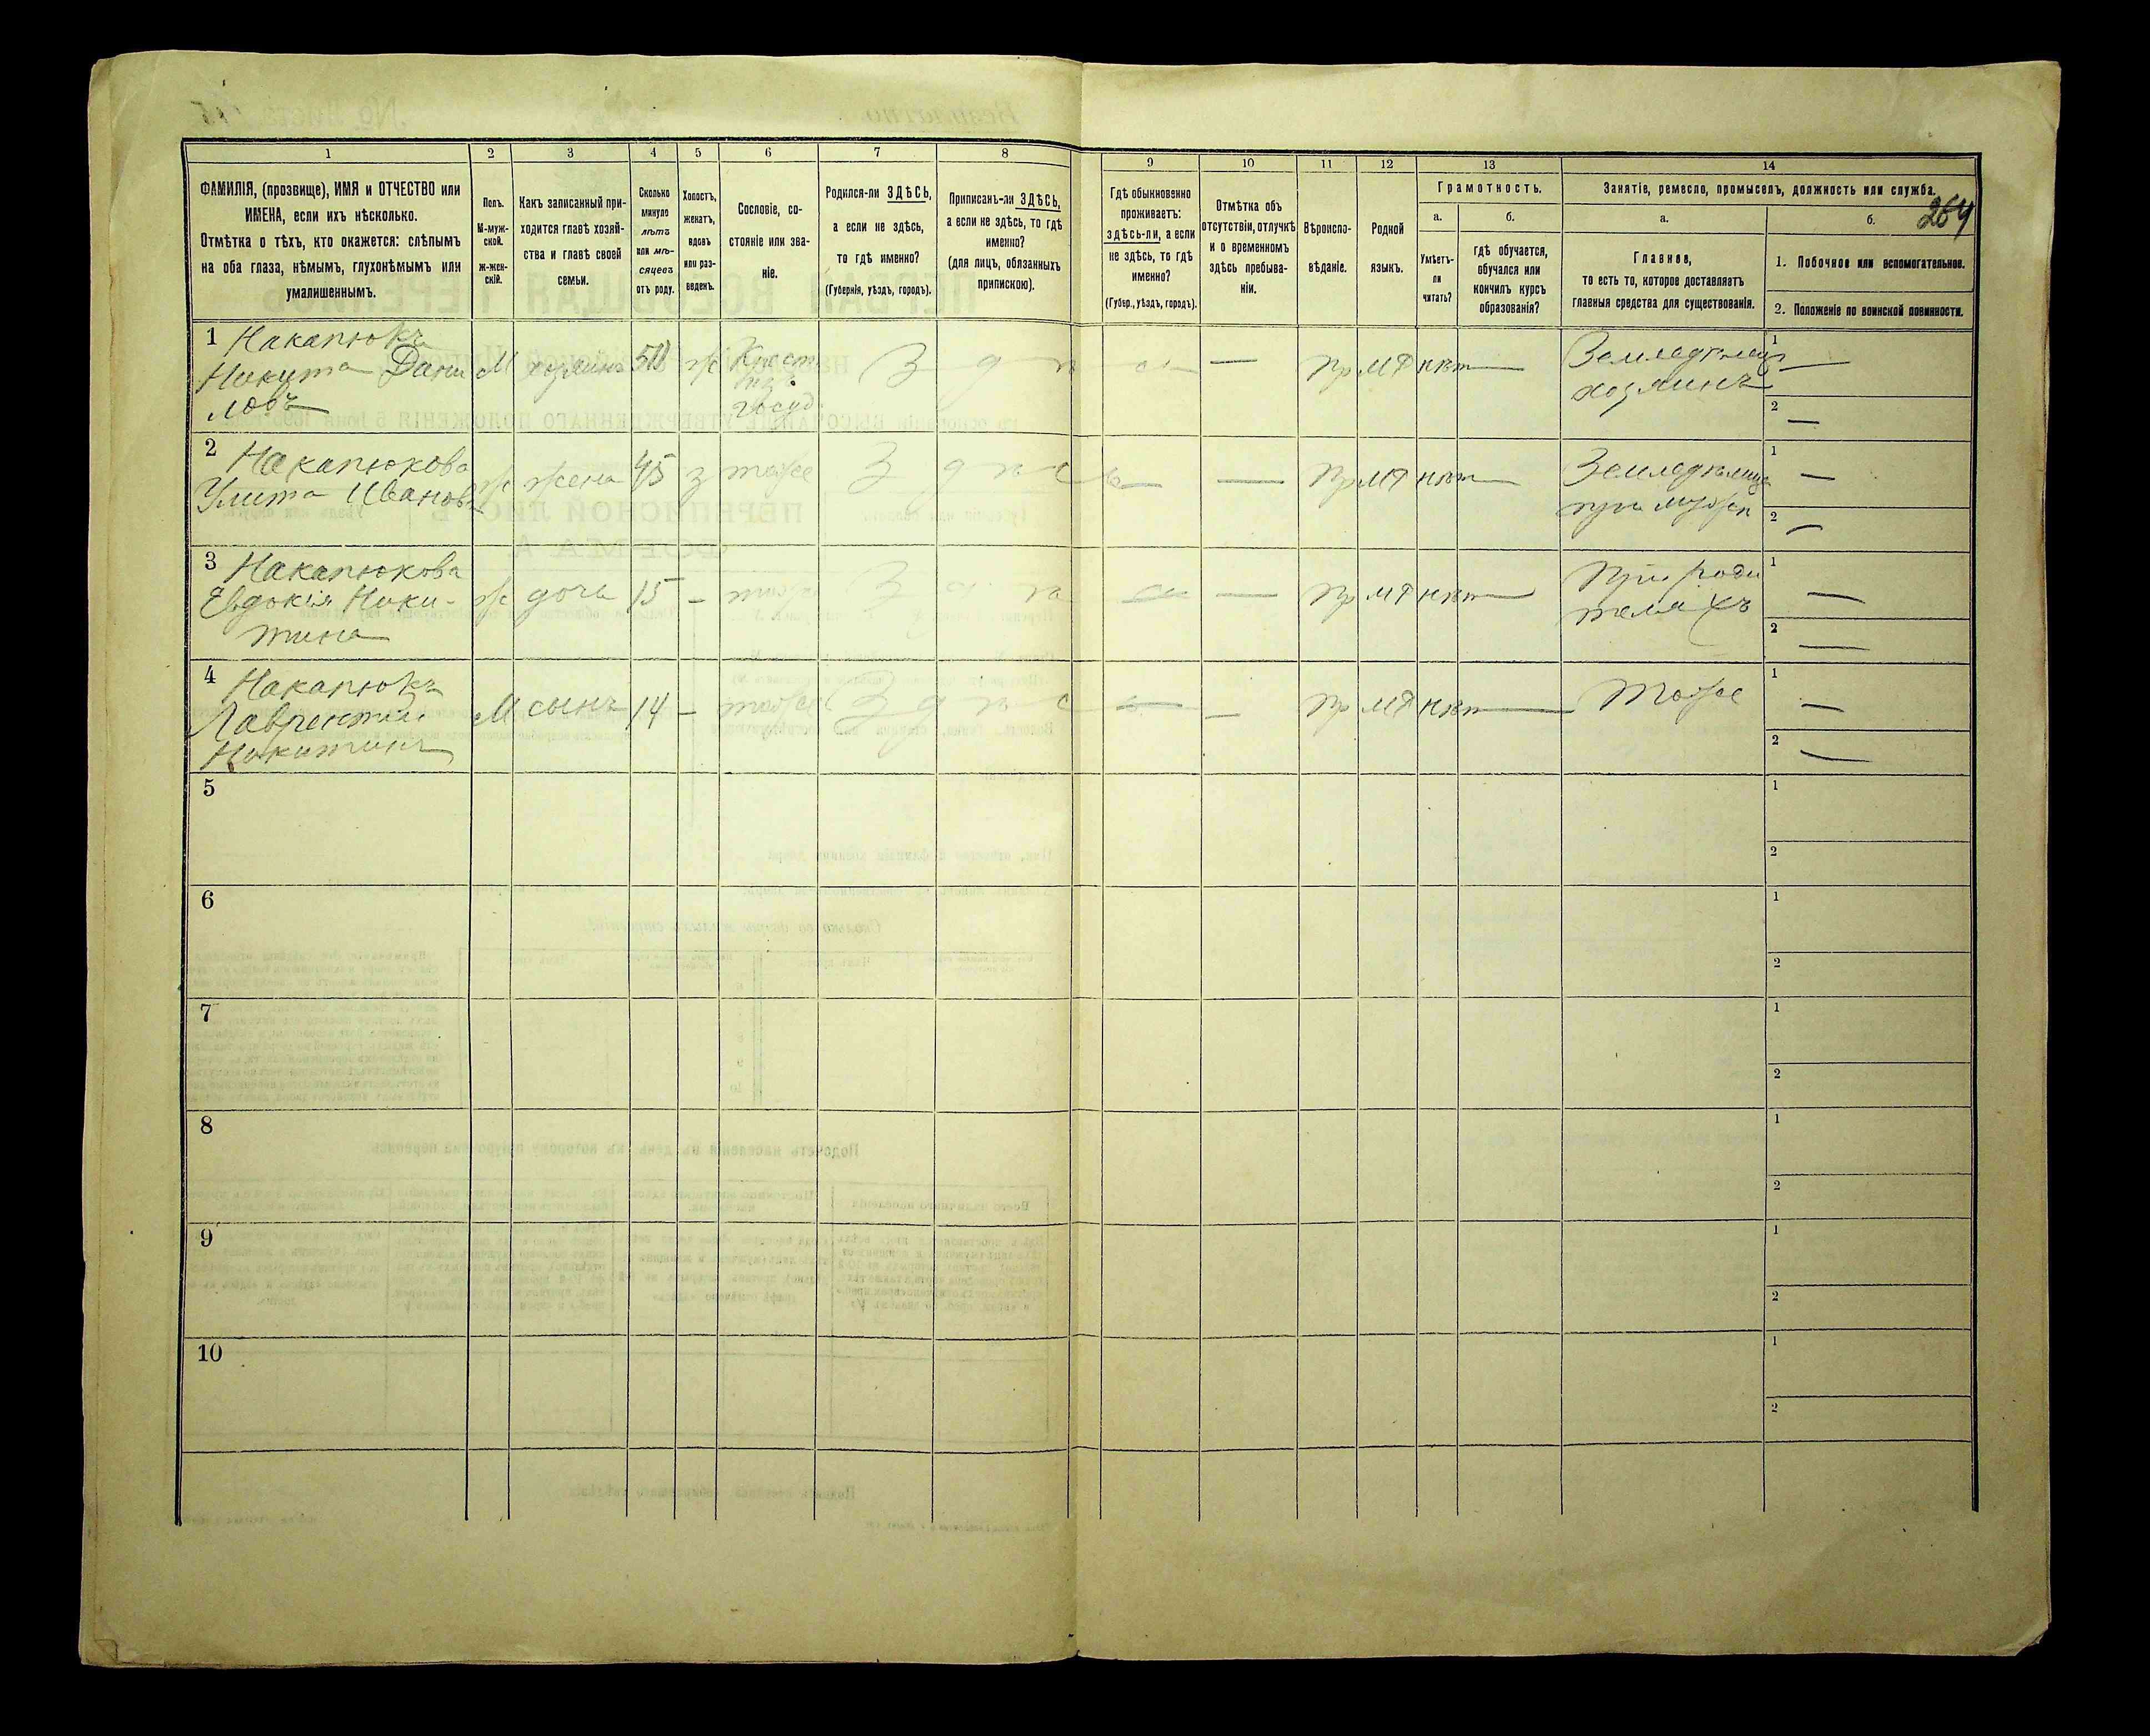 264
1 2 3 4 5 6 7 8 9 10 11 12 13 14
ФАМИЛІЯ, (прозвище), ИМЯ и ОТЧЕСТВО или
ИМЕНА, если ихъ нѣсколько.
Отмѣтка о тѣхъ, кто окажется: слѣпымъ
на оба глаза, нѣмымъ, глухонѣмымъ или
умалишеннымъ.
Полъ.
М-муж-
ской.
ж-жен-
скій.
Какъ записанный при-
ходится главѣ хозяй-
ства и главѣ своей
семьи.
Сколько
минуло
лѣтъ
или мѣ-
сяцевъ
отъ роду.
Холостъ,
женатъ,
вдовъ
или раз-
веденъ.
Сословіе, со-
стояніе или зва-
ніе.
Родился-ли ЗДѢСЬ,
а если не здѣсь,
то гдѣ именно?
(Губернія, уѣздъ, городъ).
Приписанъ-ли ЗДѢСЬ,
а если не здѣсь, то гдѣ
именно?
(для лицъ, обязанныхъ
припискою).
Гдѣ обыкновенно
проживаетъ:
здѣсь-ли, а если
не здѣсь, то гдѣ
именно?
(Губер., уѣздъ, городъ).
Отмѣтка объ
отсутствіи, отлучкѣ
и о временномъ
здѣсь пребыва-
ніи.
Вѣроиспо-
вѣданіе.
Родной
языкъ.
Грамотность.
а.
Умѣетъ-
ли
читать?
б.
гдѣ обучается,
обучался или
кончилъ курсъ
образованія?
Занятіе, ремесло, промыселъ, должность или служба.
а.
Главное,
то есть то, которое доставляетъ
главныя средства для существованія.
б.
1. Побочное или вспомогательное.
2. Положеніе по воинской повинности.
1 Накапюкъ
Никита Дани
ловъ
М хозяинъ 50 ж Крест
изъ
госуд.
Здѣсь — Пр МР нѣтъ
Земледѣлец
хозяинъ
1 —
2 —
2 Накапюкова
Улита Иванова
ж жена 45 з тоже Здѣсь — Пр МР нѣтъ
Земледѣлица
при мужѣ
1 —
2 —
3 Накапюкова
Евдокія Ники-
тина
ж дочь 15 — тоже — Пр МР нѣтъ
При роди
теляхъ
1 —
2 —
4 Накапюкъ
Лаврентій
Никитинъ
М сынъ 14 — тоже Здѣсь — Пр МР нѣтъ Тоже
1 —
2 —
5
1
2
6
1
2
7
1
2
8
1
2
9
1
2
10
1
2